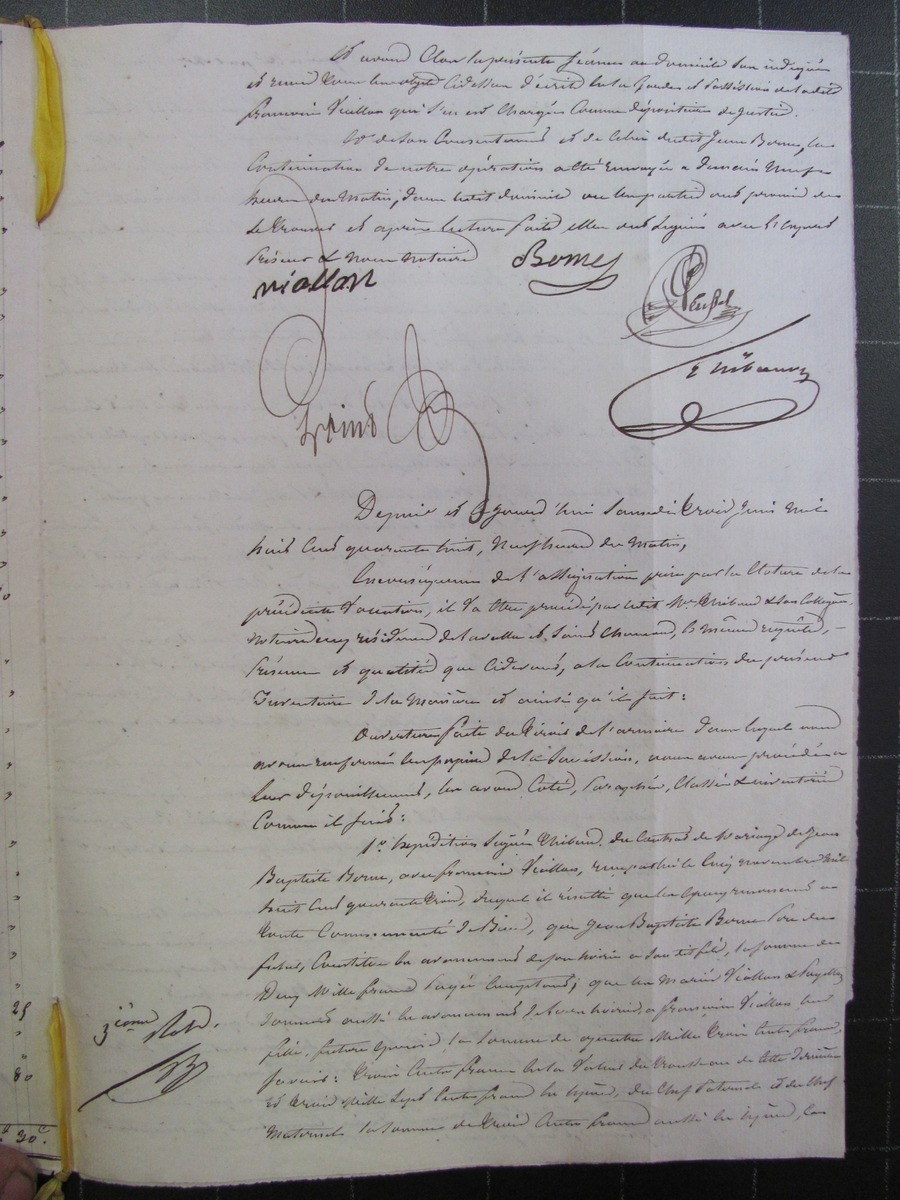 Et avons Clos la présente Séance au domicile sus indiqué
et remis tous les objets Cidessus décrits en la garde et possession de ladite
françoise Viallon qui s'en est Chargée Comme dépositaire de justice.
Et de son Consentement et de Celui dudit Jean Borne, la
Continuation de notre opération a été renvoyée a demain Neuf
heures du Matin, dans ledit domicile ou les parties ont promis de
se trouver et après lecture faite elles ont Signé avec l'expert
priseur & Nous Notaires
viallon
Borne
Thibaud
Depuis et Aujourd'hui Samedi trois Juin Mil
huit Cent quarante huit, Neuf heures du Matin,
En Conséquence de l'assignation prise par la Cloture de la
précédente Vacation, il a été procédé par ledit Me Thibaud & Son Collègue,
Notaires en résidence de la ville de Saint Chamond, les mêmes requête,
présence et qualités que Cidevant, a la Continuation du présent
Inventaire de la Manière et ainsi qu'il suit :
Ouverture faite du tiroir de l'armoire dans lequel nous
avons renfermé les papiers de la Succession, nous avons procédé a
leur dépouillement, les avons Coté, paraphé, Classé & inventorié
Comme il suit :
1° Expédition Signée Thibaud, du Contrat de Mariage de Jean
Baptiste Borne, avec françoise Viallon, reçu par lui le Cinq novembre Mil
huit Cent quarante trois, duquel il résulte que les époux renoncent a
toute Communauté de Biens, que Jean Baptiste Borne père du
futur, Constitue en avancement d'hoirie a son dit fils, la Somme de
Deux Mille francs payés Comptant ; que les Mariés Viallon &
donnent aussi en avancement d'hoirie, a françoise Viallon leur
fille, future épouse, la Somme de quatre Mille trois Cents francs,
Savoir : trois Cents francs en la Valeur du trousseau de cette dernière
et trois Mille Sept Cents francs en espèces, du Chef Paternel et du Chef
Maternel la Somme de trois Cents francs aussi en espèces, les
3ième Rôle.
25
80
20